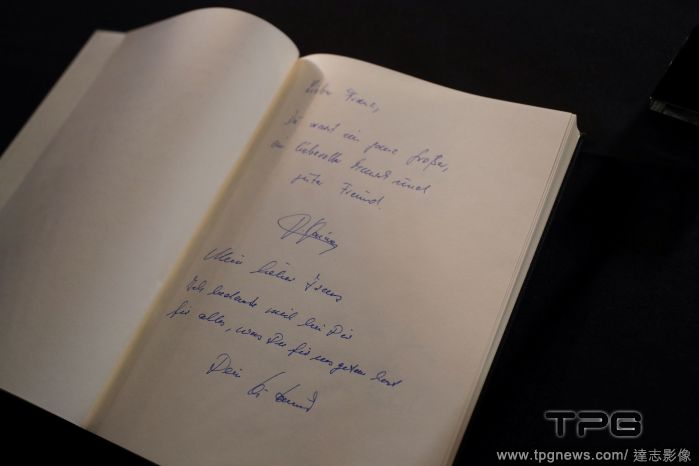 Lieber Franz,
Du warst ein ganz Großer,
ein liebevoller und
guter Freund.
Mein lieber Franz
Ich bedanke mich bei Dir
für alles, was Du für uns getan hast
Dein
TPG
www.tpgnews.com/ 達志影像